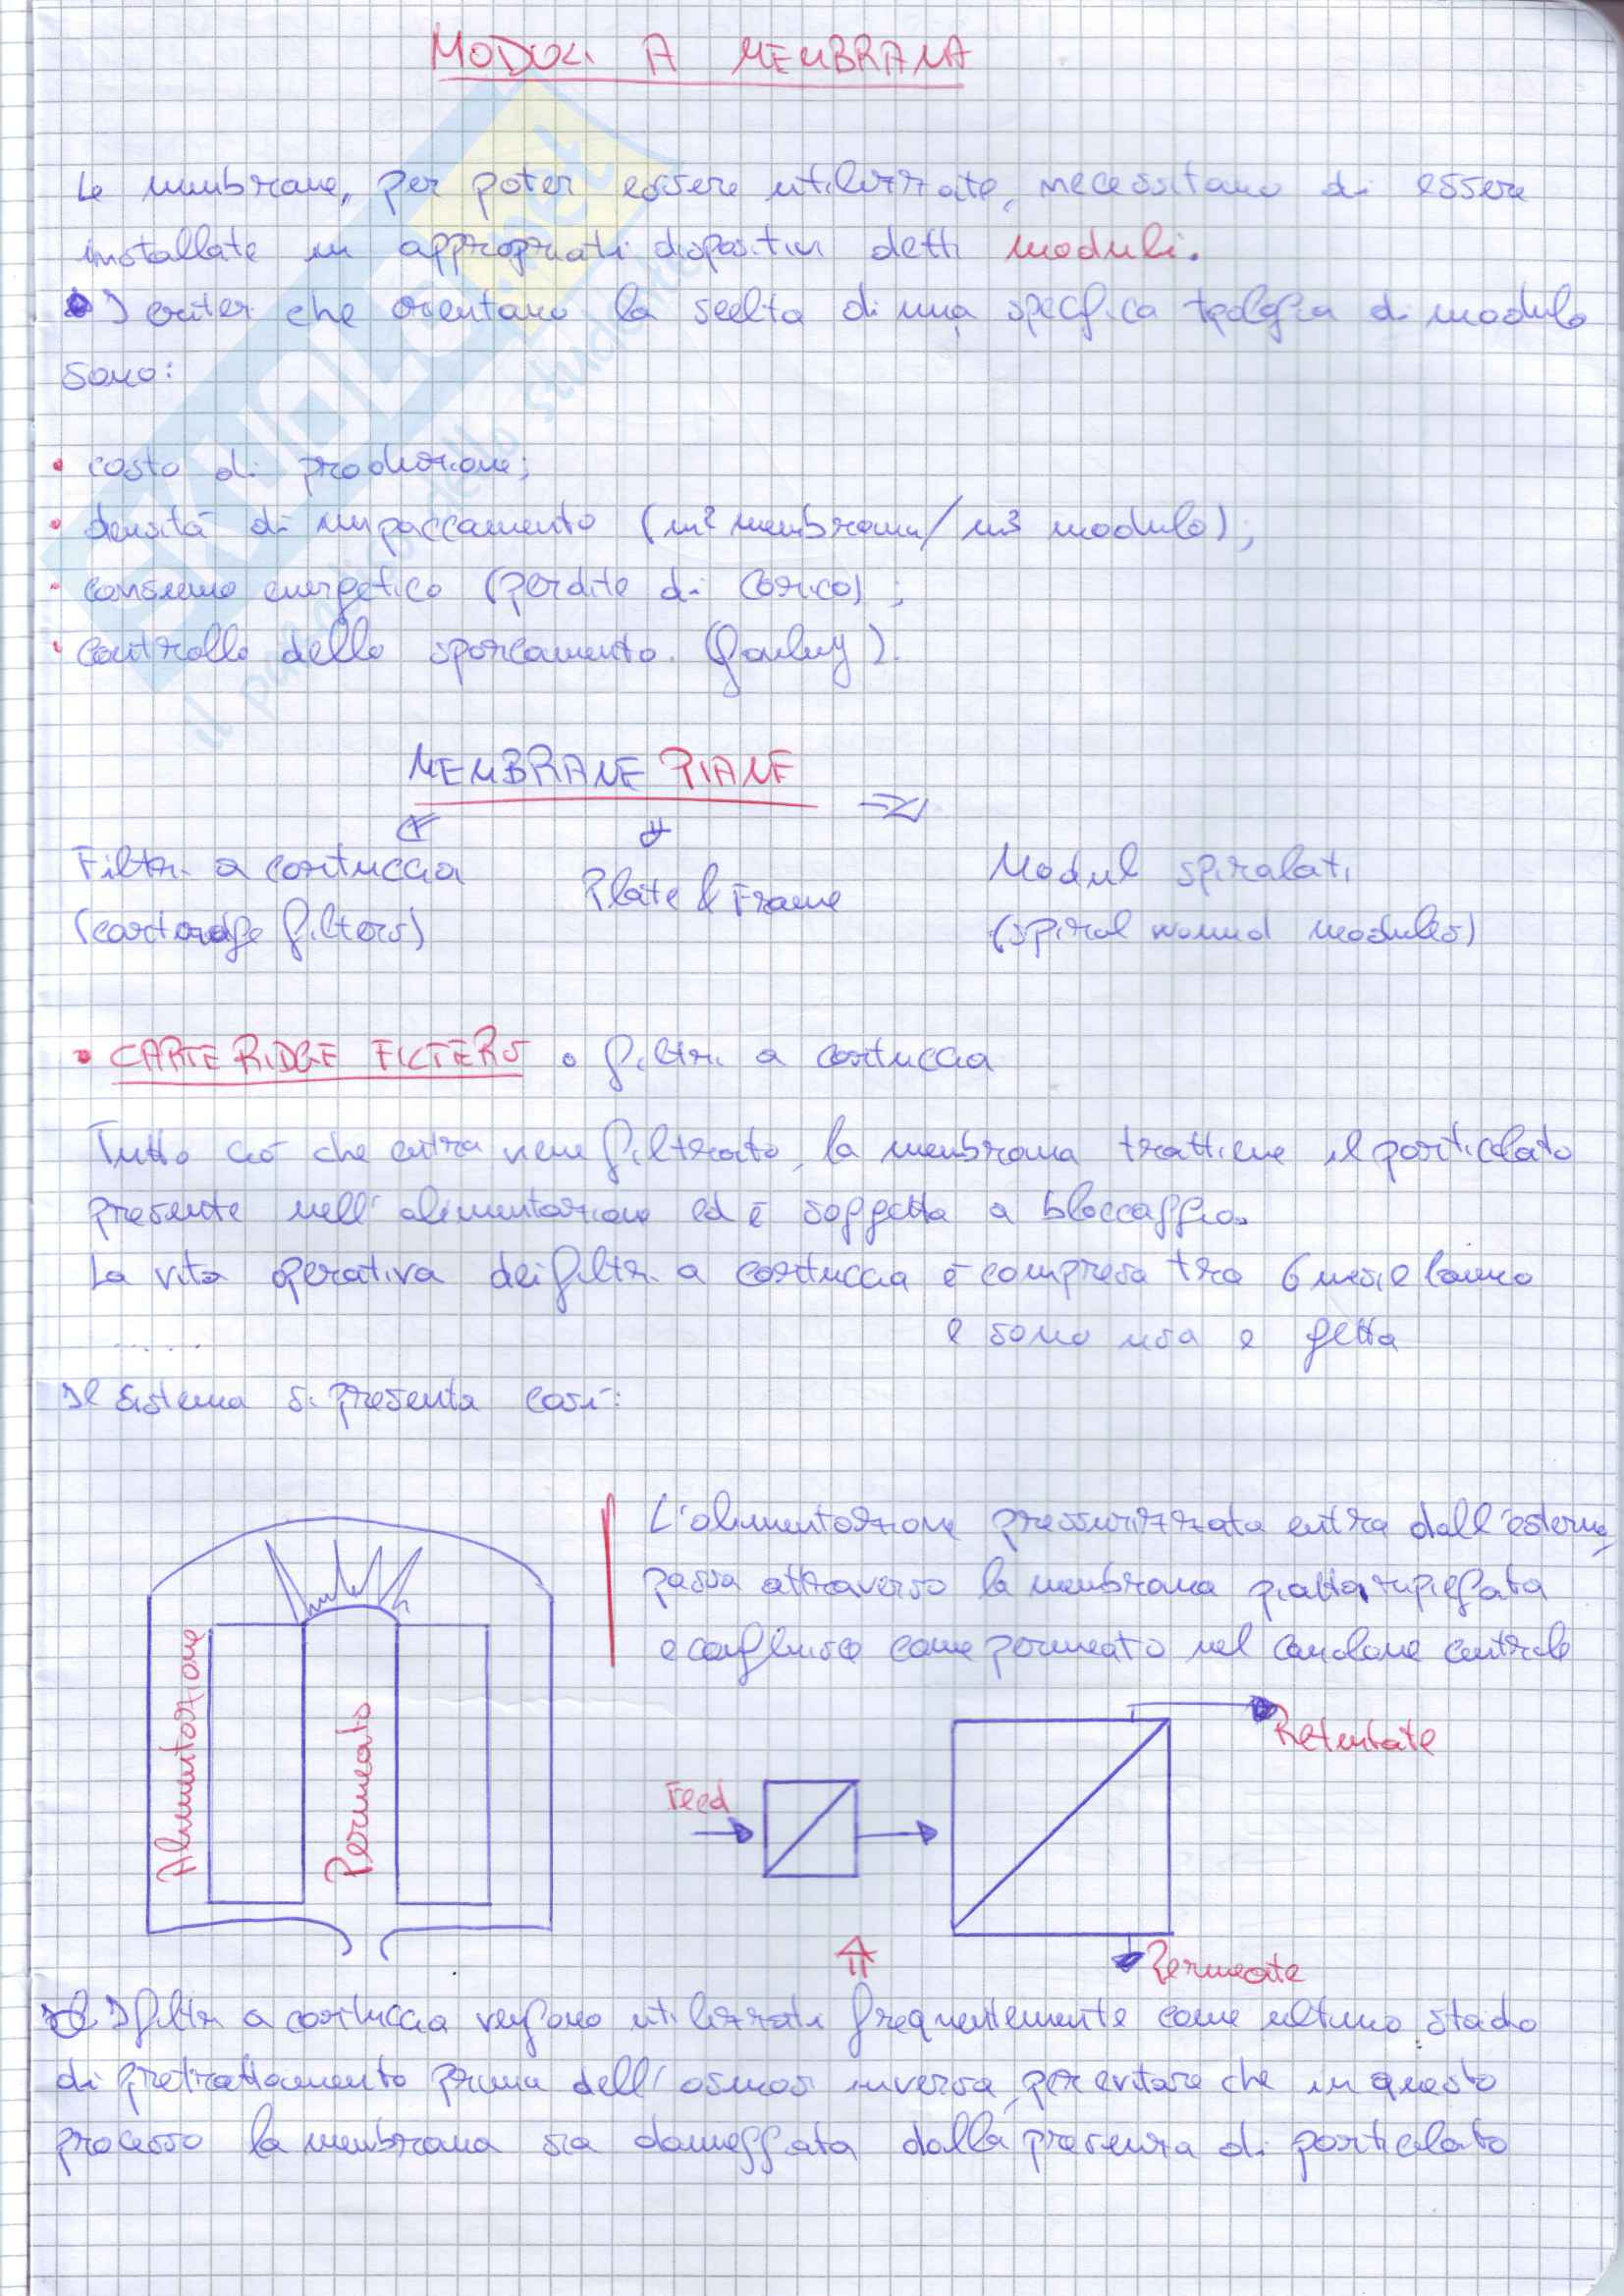 MODULI A MEMBRANA
Le membrane, per poter essere utilizzate, necessitano di essere
installate in appropriati dispositivi detti moduli.
I criteri che orientano la scelta di una specifica tipologia di modulo
sono:
• costo di produzione;
• densità di impaccamento (m² membrana/m³ modulo);
• consumo energetico (perdite di carico);
• controllo dello sporcamento. (fouling).
MEMBRANE PIANE
Filtri a cartuccia Plate & Frame Moduli spiralati
(cartridge filters) (spiral wound modules)
• CARTERIDGE FILTERS o filtri a cartuccia
Tutto ciò che entra viene filtrato, la membrana trattiene il particolato
presente nell'alimentazione ed è soggetta a bloccaggio.
La vita operativa dei filtri a cartuccia è compresa tra 6 mesi e l'anno
e sono usa e getta
.....
Il sistema si presenta così:
L'alimentazione pressurizzata entra dall'esterno,
passa attraverso la membrana piatta ripiegata
e confluisce come permeato nel canalone centrale
Alimentazione
Permeato
Feed
Retentate
Permeate
I filtri a cartuccia vengono utilizzati frequentemente come ultimo stadio
di pretrattamento prima dell'osmosi inversa, per evitare che in questo
processo la membrana sia danneggiata dalla presenza di particolato
SKUOLA.net
il paradiso dello studente